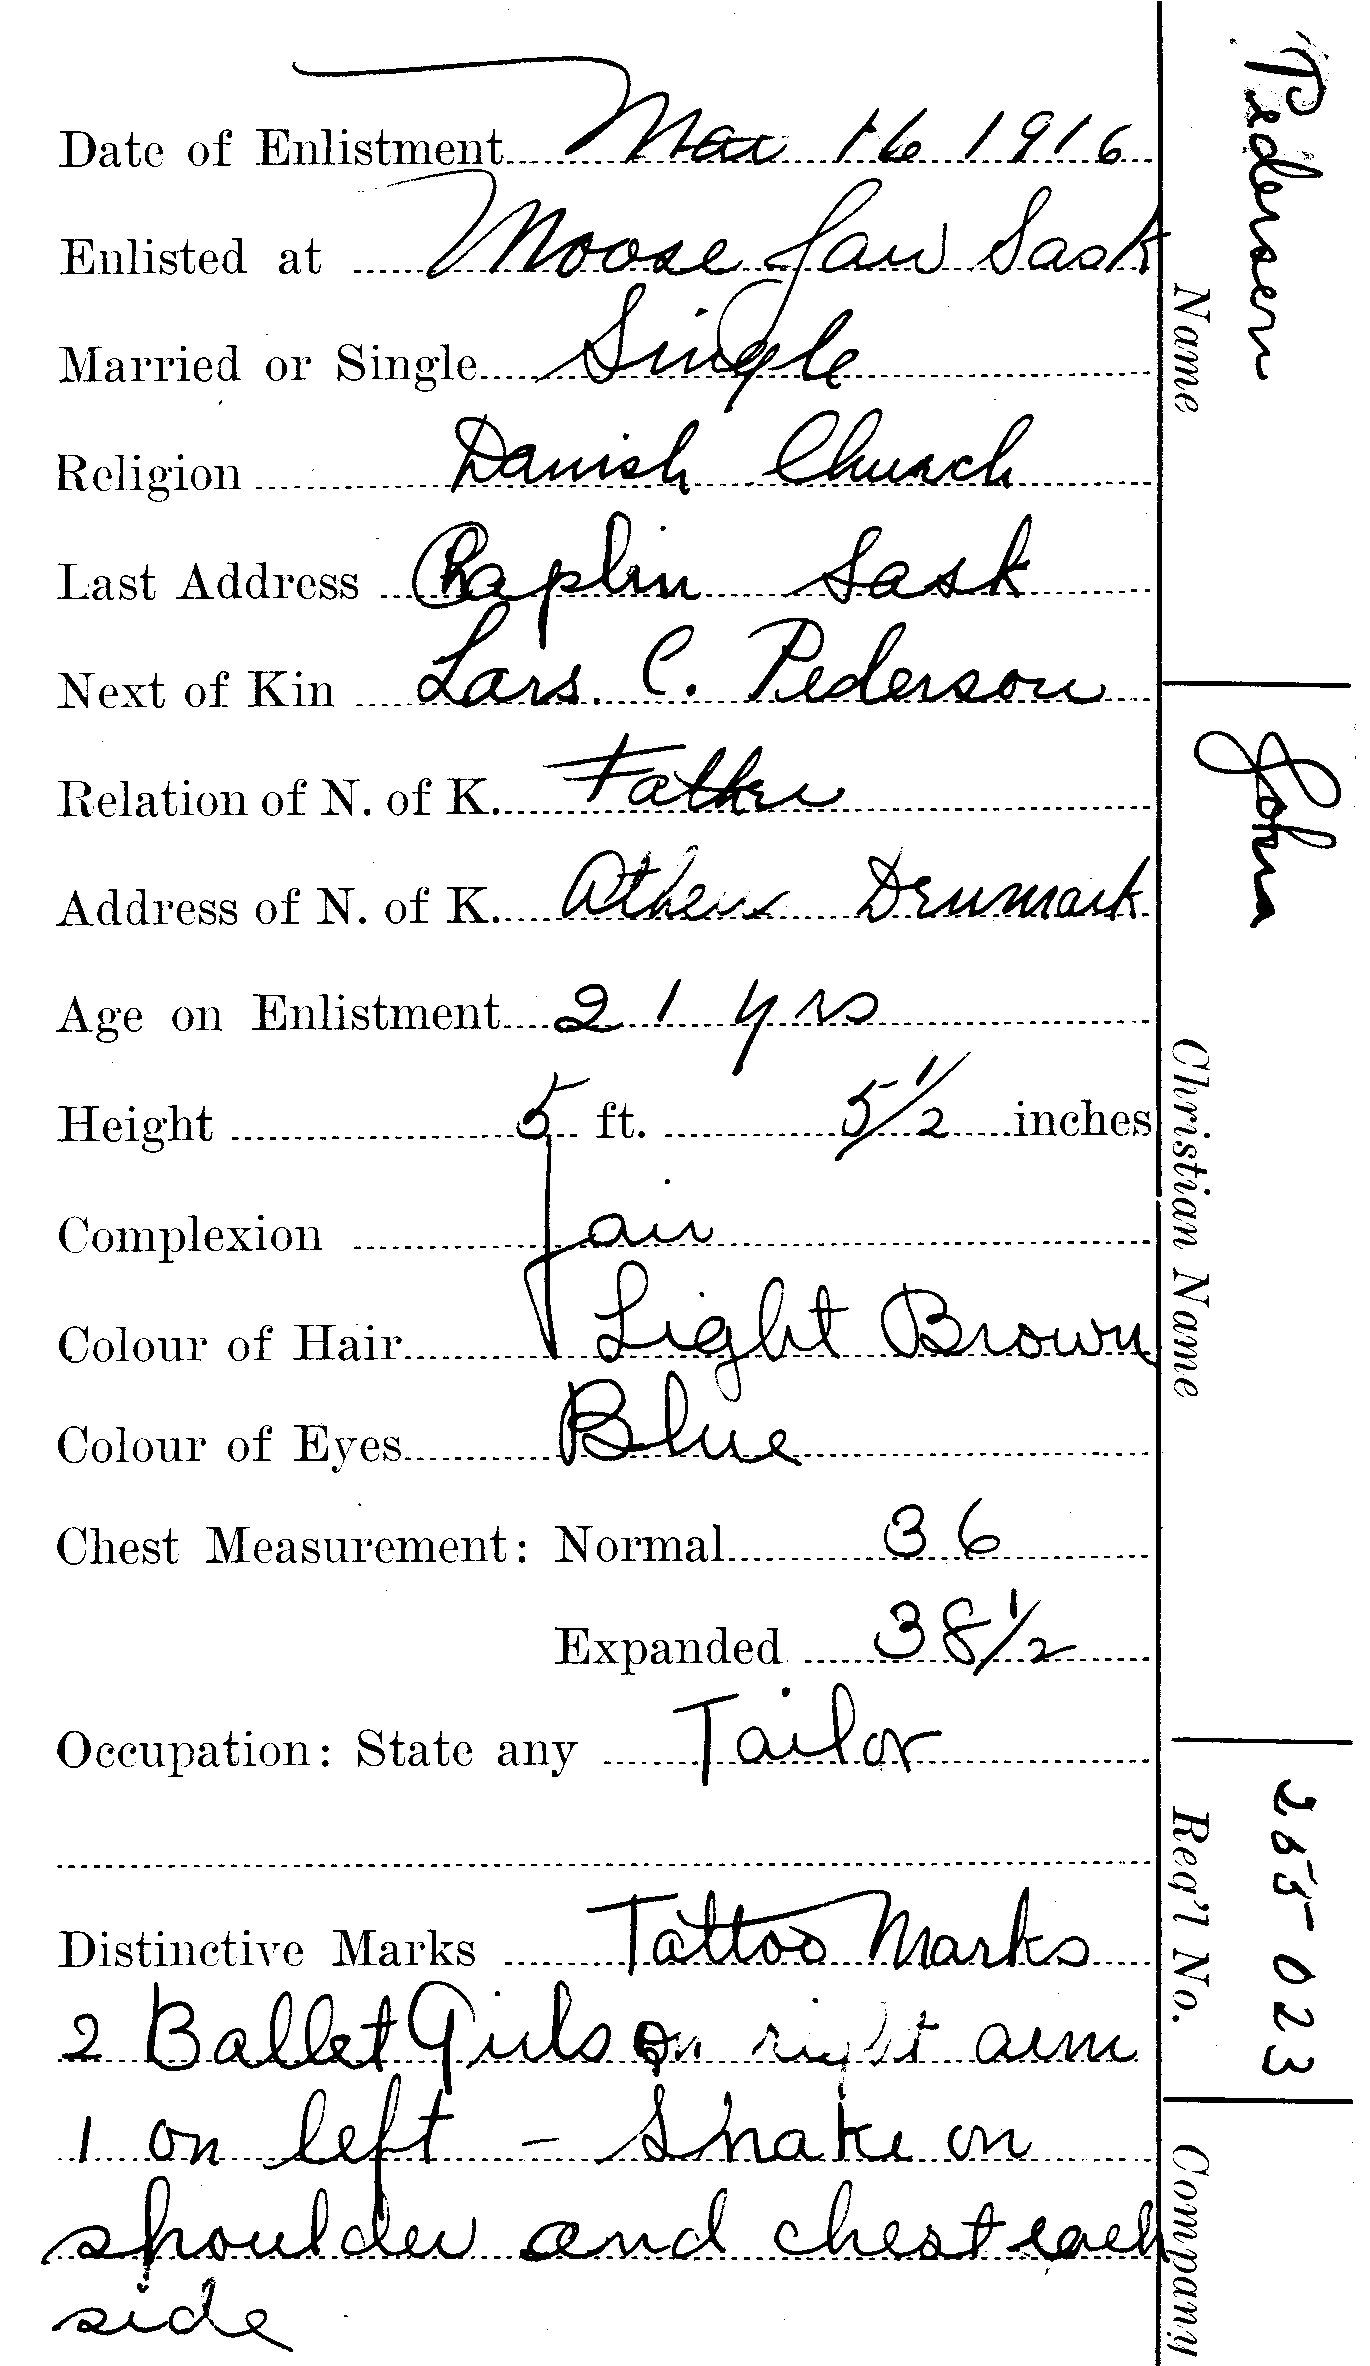 Date of Enlistment Mar 16 1916
Enlisted at Moose Jaw Sask
Married or Single Single
Religion Danish Church
Last Address Chaplin Sask
Next of Kin Lars. C. Pederson
Relation of N. of K. Father
Address of N. of K. Athens Denmark
Age on Enlistment 21 yrs
Height 5 ft. 5 1/2 inches
Complexion fair
Colour of Hair Light Brown
Colour of Eyes Blue
Chest Measurement: Normal 36
Expanded 38 1/2
Occupation: State any Tailor
Distinctive Marks Tattoo Marks
2 Ballet Girls on right arm
1 on left - Snake on
shoulder and chest each
side
Pedersen
Name
John
Christian Name
265023
Reg'l No.
Company